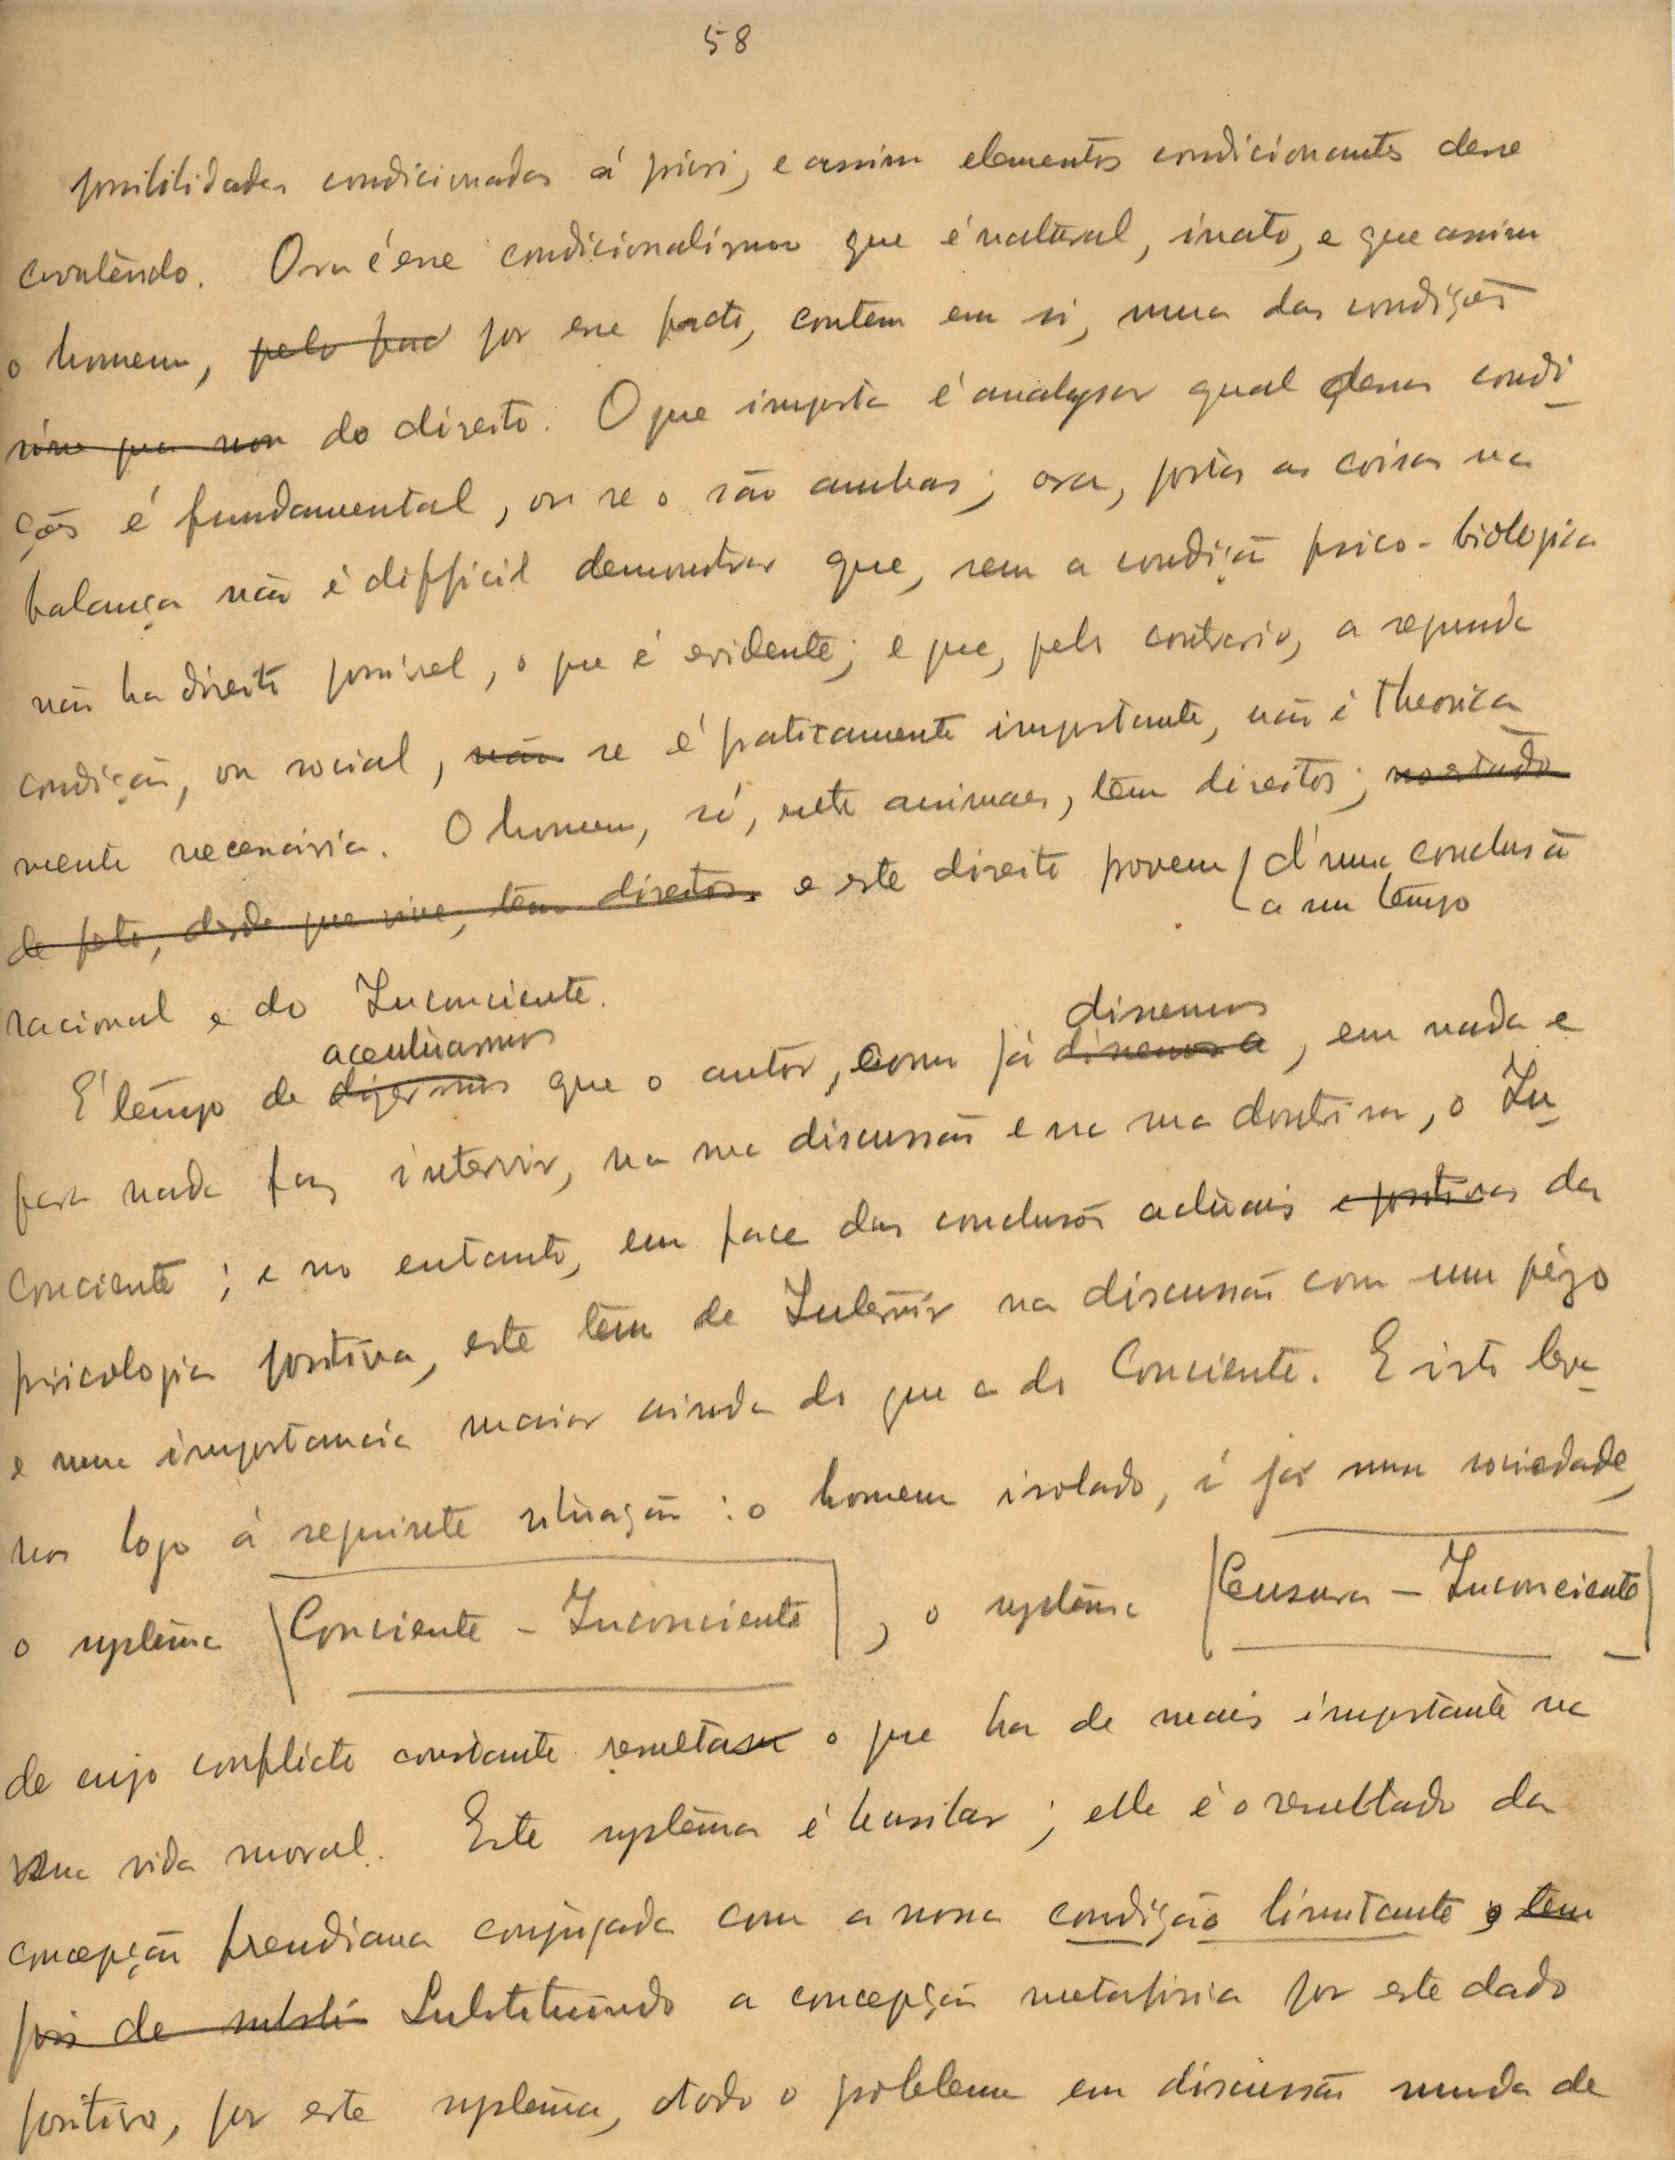 58
possibilidades condicionadas á priori, e assim elementos condicionantes desse
conteúdo. Ora é esse condicionalismo que é natural, inato, e que assim
o homem, pelo fac por esse facto, contem em si, uma das condições
sine qua non do direito. O que importa é analysar qual dessas condi-
ções é fundamental, ou se o são ambas; ora, postas as coisas na
balança não é difficil demonstrar que, sem a condição psico-biologica
não ha direito possivel, o que é evidente; e que, pelo contrario, a segunda
condição, ou social, não se é praticamente importante, não é theorica
mente necessária. O homem, só, entre animaes, tem direitos; no estado
de facto, desde que vive, tem direitos. e este direito provem d'uma conclusão
a um tempo
racional e do Inconciente.
acentuarmos
dissemos
É tempo de dizermos que o autor, como já dissemos a, em nada e
para nada faz intervir, na sua discussão e na sua doutrina, o In-
conciente; e no entanto, em face das conclusões actuais e positivas da
psicologia positiva, este tem de Intervir na discussão com um pêzo
e uma importancia maior ainda do que a do Conciente. E isto leva-
nos logo á seguinte situação: o homem isolado, é já uma sociedade,
o systema Conciente - Inconciente, o systema Censura - Inconciente
de cujo conflicto constante resulta o que ha de mais importante na
sua vida moral. Este systema é basilar; elle é o resultado da
concepção freudiana conjugada com a nossa condição limitante, tem
pois de substi Substituindo a concepção metafisica por este dado
positivo, por este systema, todo o problema em discussão muda de